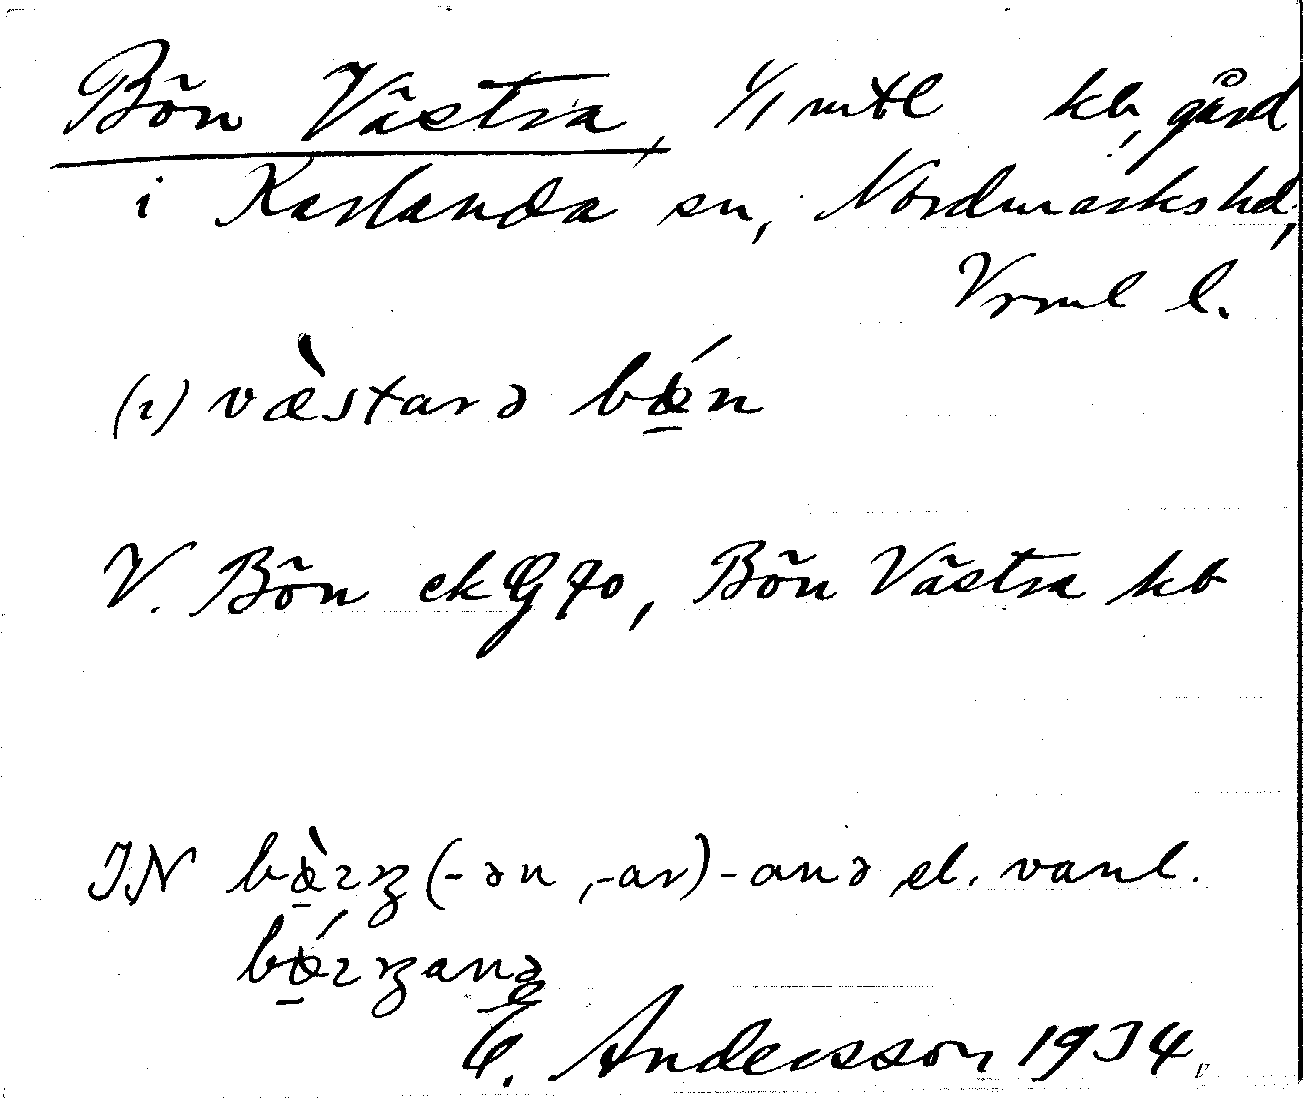 Bön Västra, 1/1 mtl kb, gård
i Karlanda sn, Nordmarks hd,
Vrml l.
(ı) væ̀starə bǿ̠n
V. Bön ek G 40, Bön Västra kb
IN (-ən, -ar) -anə el. vanl.
E. Andersson 1934.